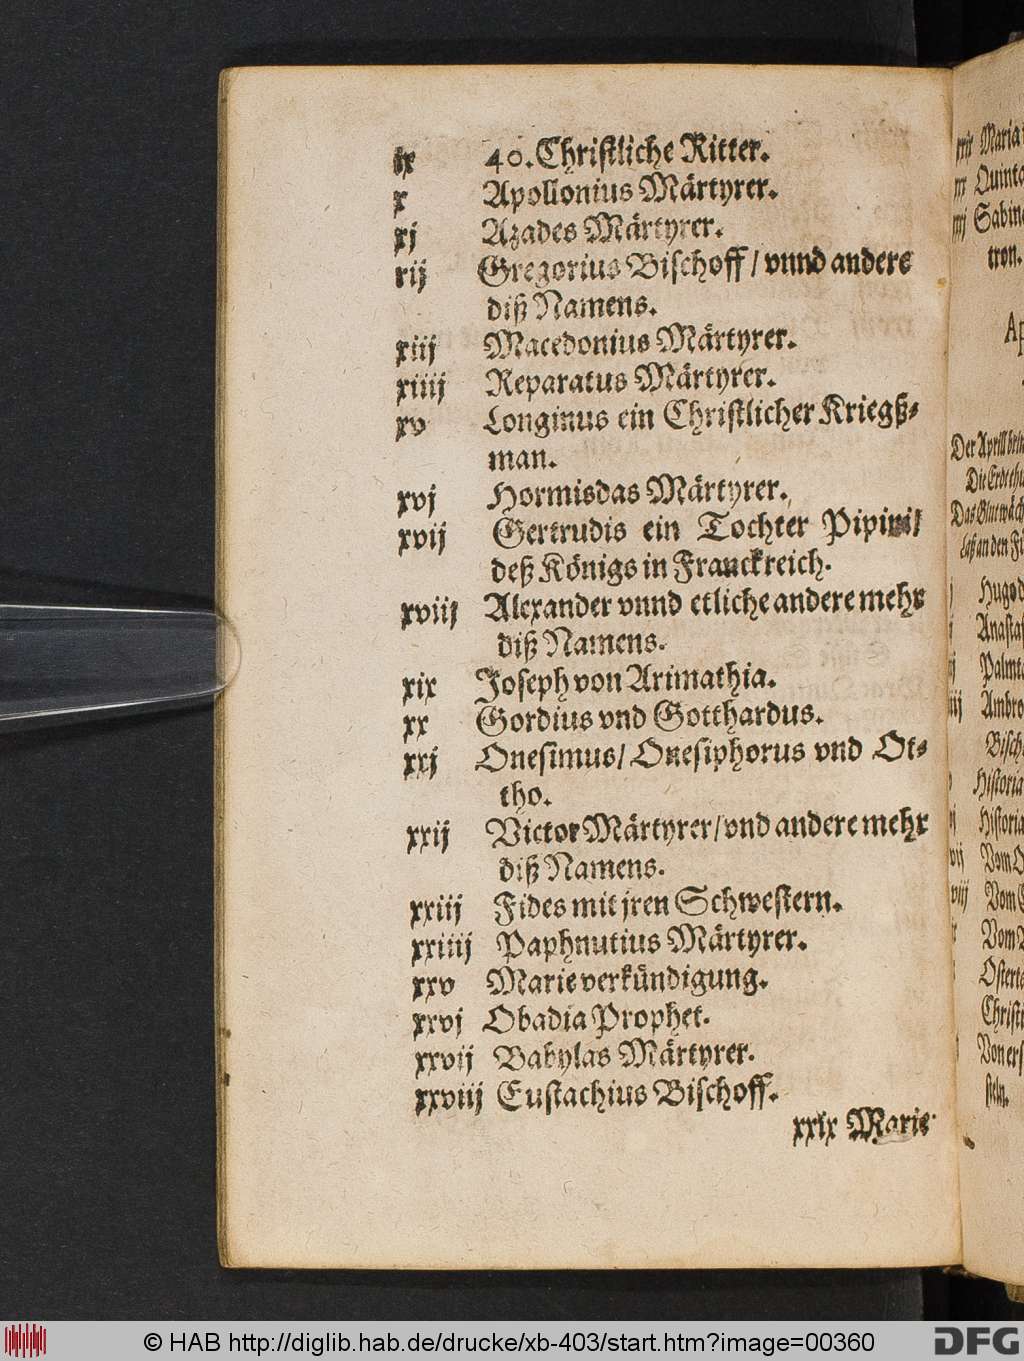 ix 40. Christliche Ritter.
x Apollonius Märtyrer.
xj Azades Märtyrer.
xij Gregorius Bischoff / vnnd andere
diß Namens.
xiij Macedonius Märtyrer.
xiiij Reparatus Märtyrer.
xv Longinus ein Christlicher Kriegß-
man.
xvj Hormisdas Märtyrer.
xvij Gertrudis ein Tochter Pipini /
deß Königs in Franckreich.
xviij Alexander vnnd etliche andere mehr
diß Namens.
xix Joseph von Arimathia.
xx Gordius vnd Gotthardus.
xxj Onesimus / Onesiphorus vnd Ot-
tho.
xxij Victor Märtyrer / vnd andere mehr
diß Namens.
xxiij Fides mit jren Schwestern.
xxiiij Paphnutius Märtyrer.
xxv Marie verkündigung.
xxvj Obadia Prophet.
xxvij Babylas Märtyrer.
xxviij Eustachius Bischoff.
xxix Maris
Maria
tron.
Der Aprill
Die Erde
Das
laß an den
Palm
Ambro
Bisch
Historia
Historia
Vom
Vom
Vom
Oster
Christi
Von
steln.
© HAB http://diglib.hab.de/drucke/xb-403/start.htm?image=00360
DFG